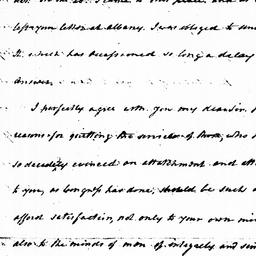 left your letter at Albany. I was obliged to send
it which has occasioned so long a delay
answer.
I perfectly agree with you my dear Sir.
reasons for quitting the service of those, who
so decidedly evinced an attachment and att
to you, as Congress has done, should be such a
afford satisfaction, not only to your own min
also to the minds of men of integrity and sin